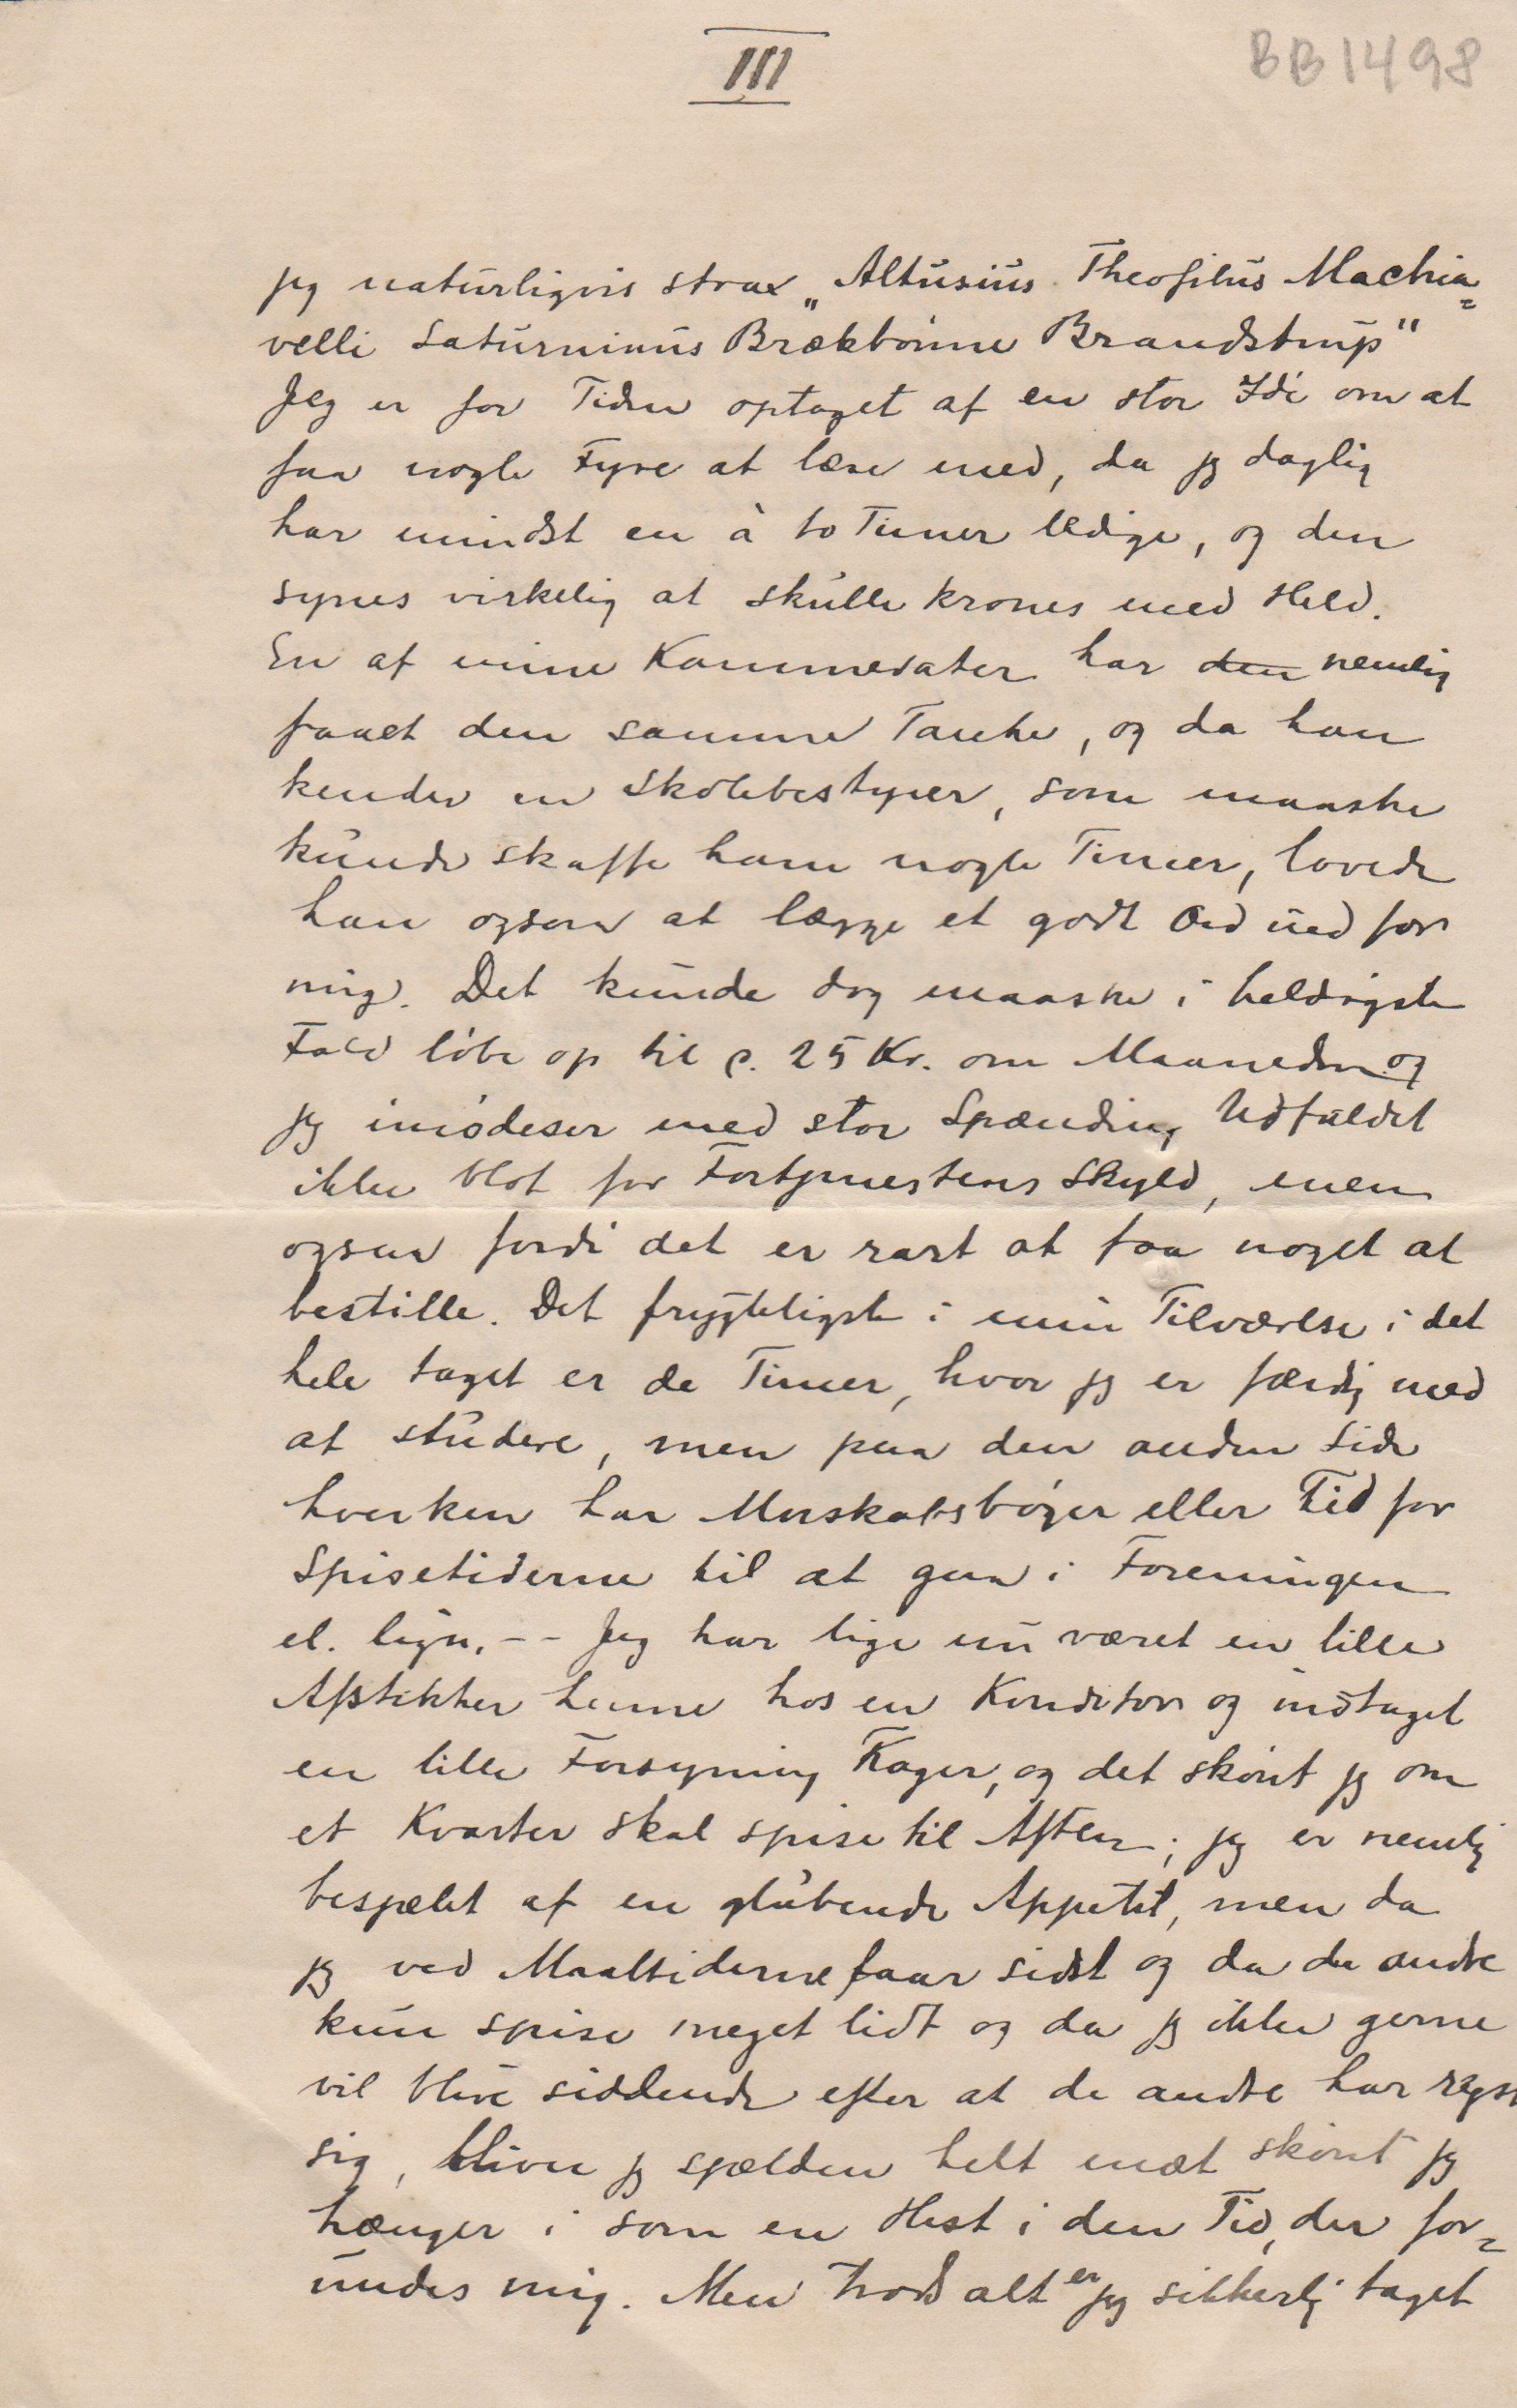 III
BB1498
jeg naturligvis strax „Altusius Theofilus Machia=
velli Saturninus Brækbønne Brandstrup"
Jeg er for Tiden optaget af en stor Idé om at
faa nogle Fyre at læse med, da jeg daglig
har mindst en à to Timer ledige, og den
synes virkelig at skulle krones med Held.
En af mine Kammerater har den nemlig
faaet den samme Tanke, og da han
kender en Skolebestyrer, som maaske
kunde skaffe ham nogle Timer, lovede
han ogsaa at lægge et godt Ord ind for
mig. Det kunde dog maaske i heldigste
Fald løbe op til c. 25 Kr. om Maaneden og
jeg imødeser med stor Spænding Udfaldet
ikke blot for Fortjenestens Skyld, men
ogsaa fordi det er rart at faa noget at
bestille. Det frygteligste i min Tilværelse i det
hele taget er de Timer, hvor jeg er færdig med
at studere, men paa den anden Side
hverken har Morskabsbøger eller Tid for
Spisetiderne til at gaa i Foreningen
el. lign. -- Jeg har lige nu været en lille
Afstikker henne hos en Konditor og indtaget
en lille Forsyning Kager, og det skønt jeg om
et Kvarter skal spise til Aften; jeg er nemlig
besjælet af en glubende Appetit, men da
jeg ved Maaltiderne faar sidst og da de andre
kun spise meget lidt og da jeg ikke gerne
vil blive siddende efter at de andre har rejst
sig, bliver jeg sjælden helt mæt skønt jeg
hænger i som en Hest i den Tid, der for=
undes mig. Men trods alt er jeg sikkerlig taget